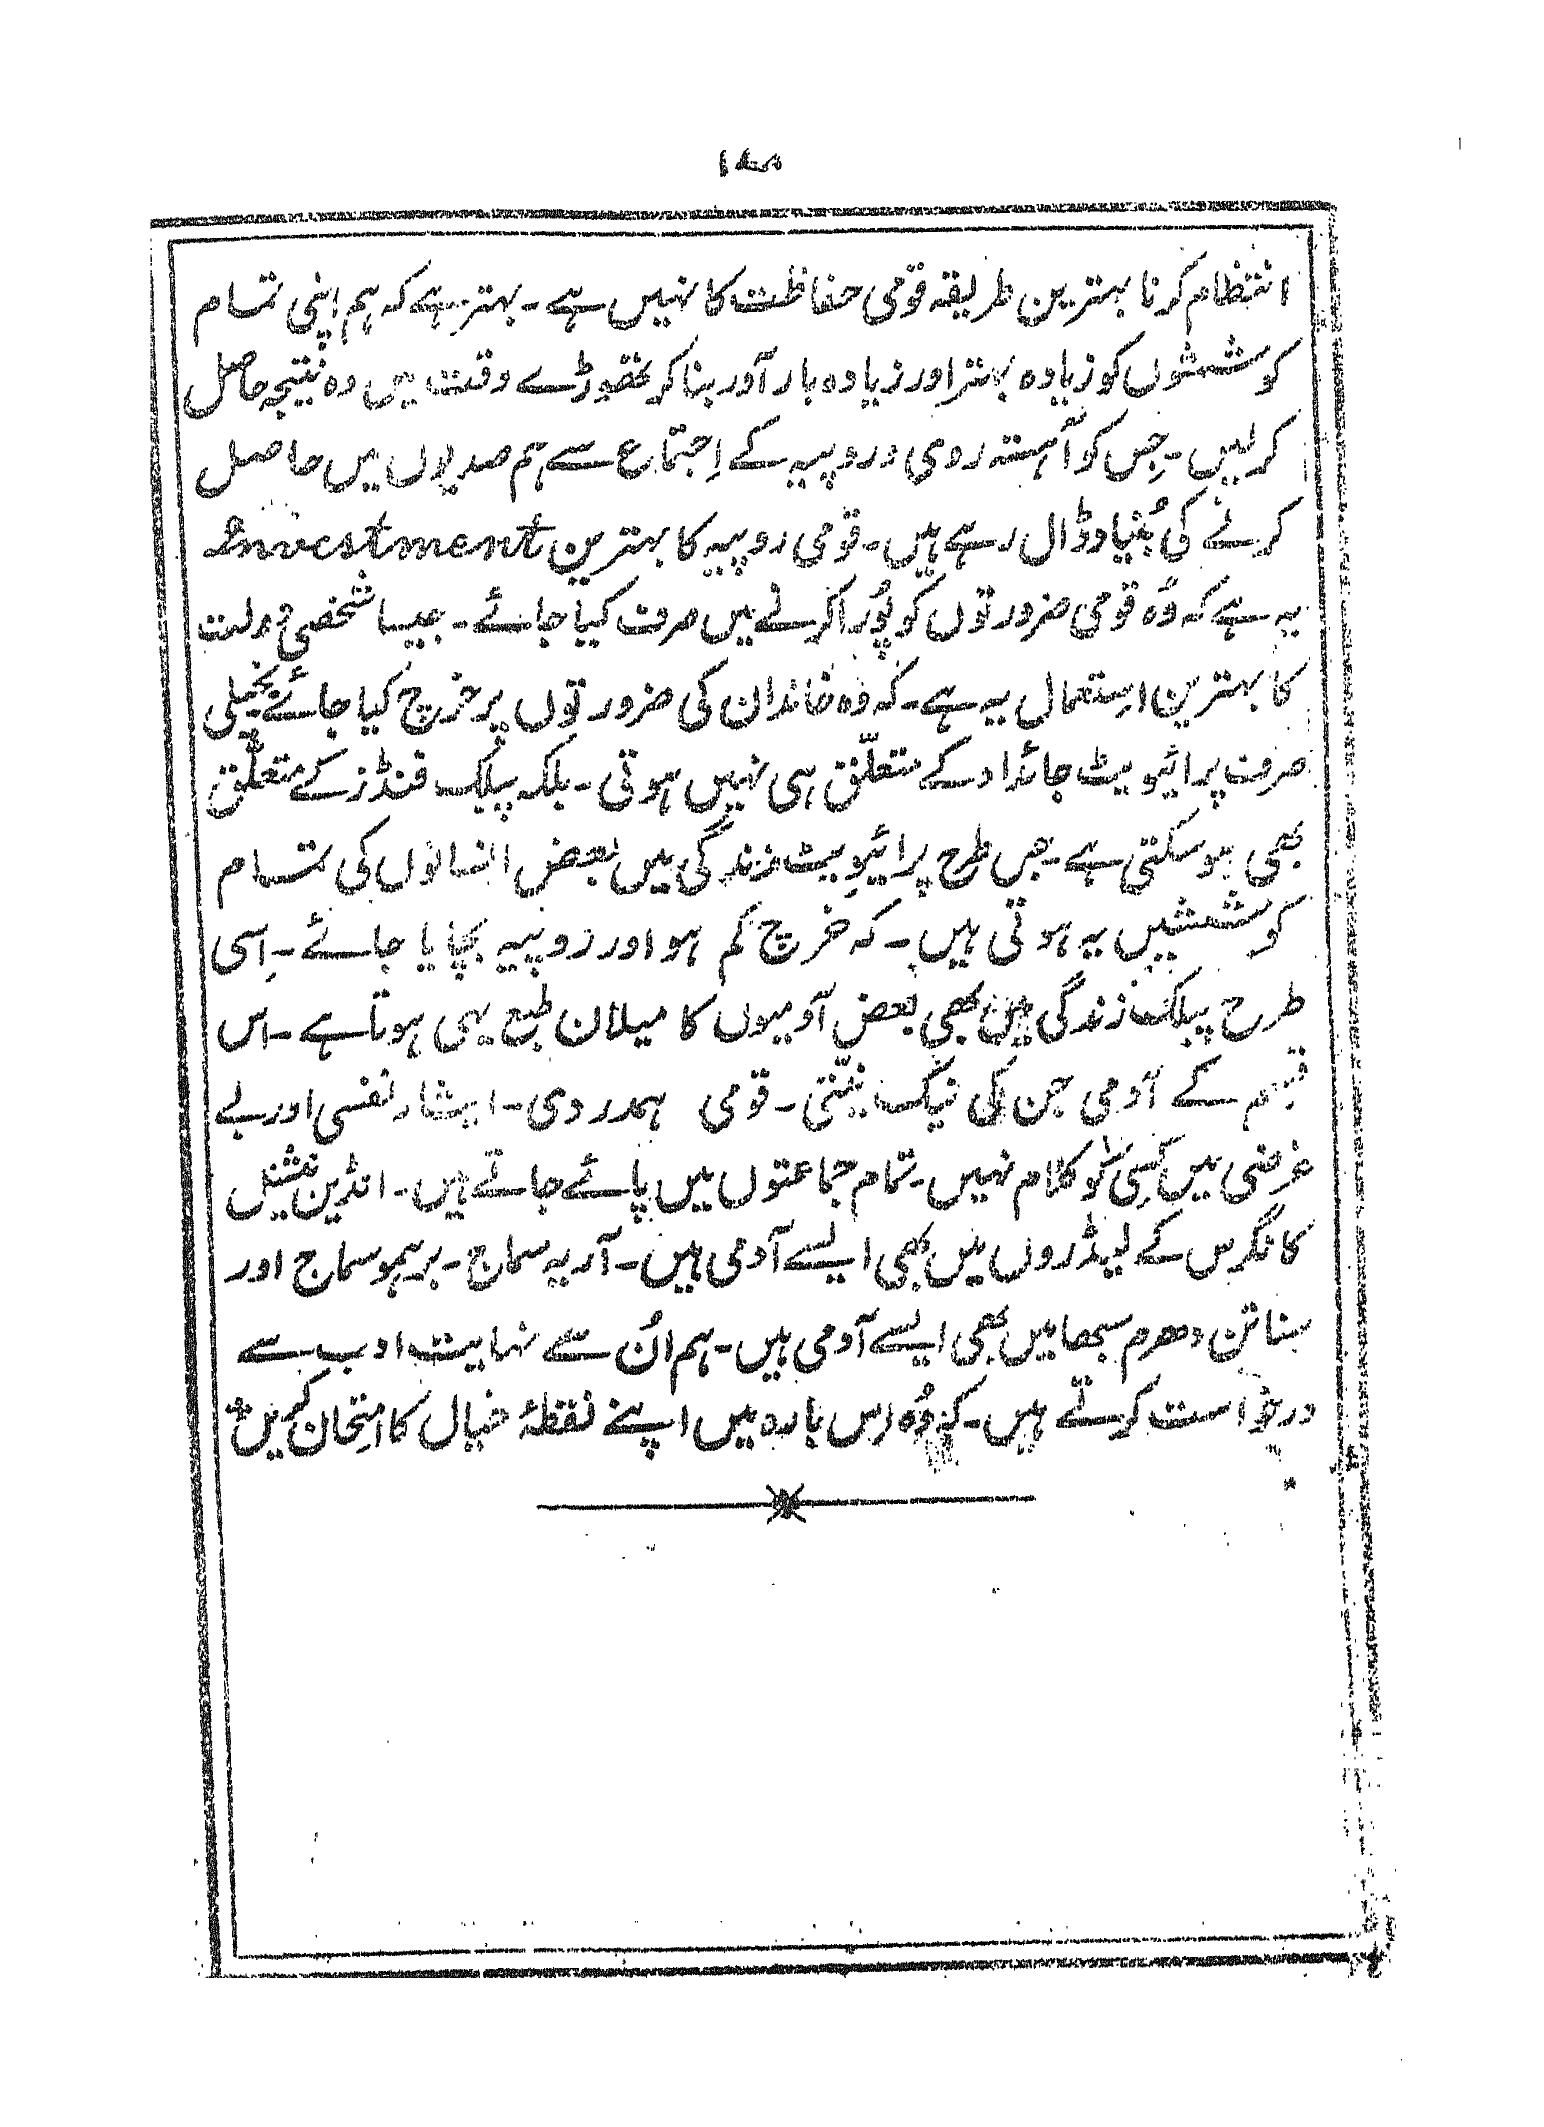 انتظام کرنا بہترین طریقہ قومی حفاظت کا نہیں ہے۔ بہتر ہے کہ ہم اپنی تمام
کوششوں کو زیادہ بہتر اور زیادہ بار آور بنا کر تھوڑے وقت میں وہ نتیجہ حاصل
کر لیں۔ جِس کو آہستہ روی و روپیہ کے اِجتماع سے ہم صدیوں میں حاصل
کرنے کی بُنیاد ڈال رہے ہیں۔ قومی روپیہ کا بہترین Investment
یہ ہے کہ وُہ قومی ضرورتوں کو پُورا کرنے میں صرف کیا جائے۔ جیسا شخصی دولت
کا بہترین اِستعمال یہ ہے۔ کہ وہ خاندان کی ضرورتوں پر خرچ کیا جائے۔ بخیلی
صرف پرائیویٹ جائداد کے متعلّق ہی نہیں ہوتی۔ بلکہ پبلک فنڈز کے متعلّق
بھی ہو سکتی ہے۔ جس طرح پرائیویٹ زندگی میں بعض انسانوں کی تمام
کوششیں یہ ہوتی ہیں۔ کہ خرچ کم ہو اور روپیہ بچایا جائے۔ اِسی
طرح پبلک زندگی میں بھی بعض آدمیوں کا میلان طبع یہی ہوتا ہے۔ اس
قسم کے آدمی جن کی نیک نیّتی۔ قومی ہمدردی۔ ایثار نفسی اور بے
غرضی میں کِسی کو کلام نہیں۔ تمام جماعتوں میں پائے جاتے ہیں۔ انڈین نیشنل
کانگرس کے لیڈروں میں بھی ایسے آدمی ہیں۔ آریہ سماج۔ برہمو سماج اور
سناتن دھرم سبھا میں بھی ایسے آدمی ہیں۔ ہم اُن سے نہایت ادب سے
درخواست کرتے ہیں۔ کہ وُہ اِس بارہ میں اپنے نقطۂ خیال کا امتحان کریں